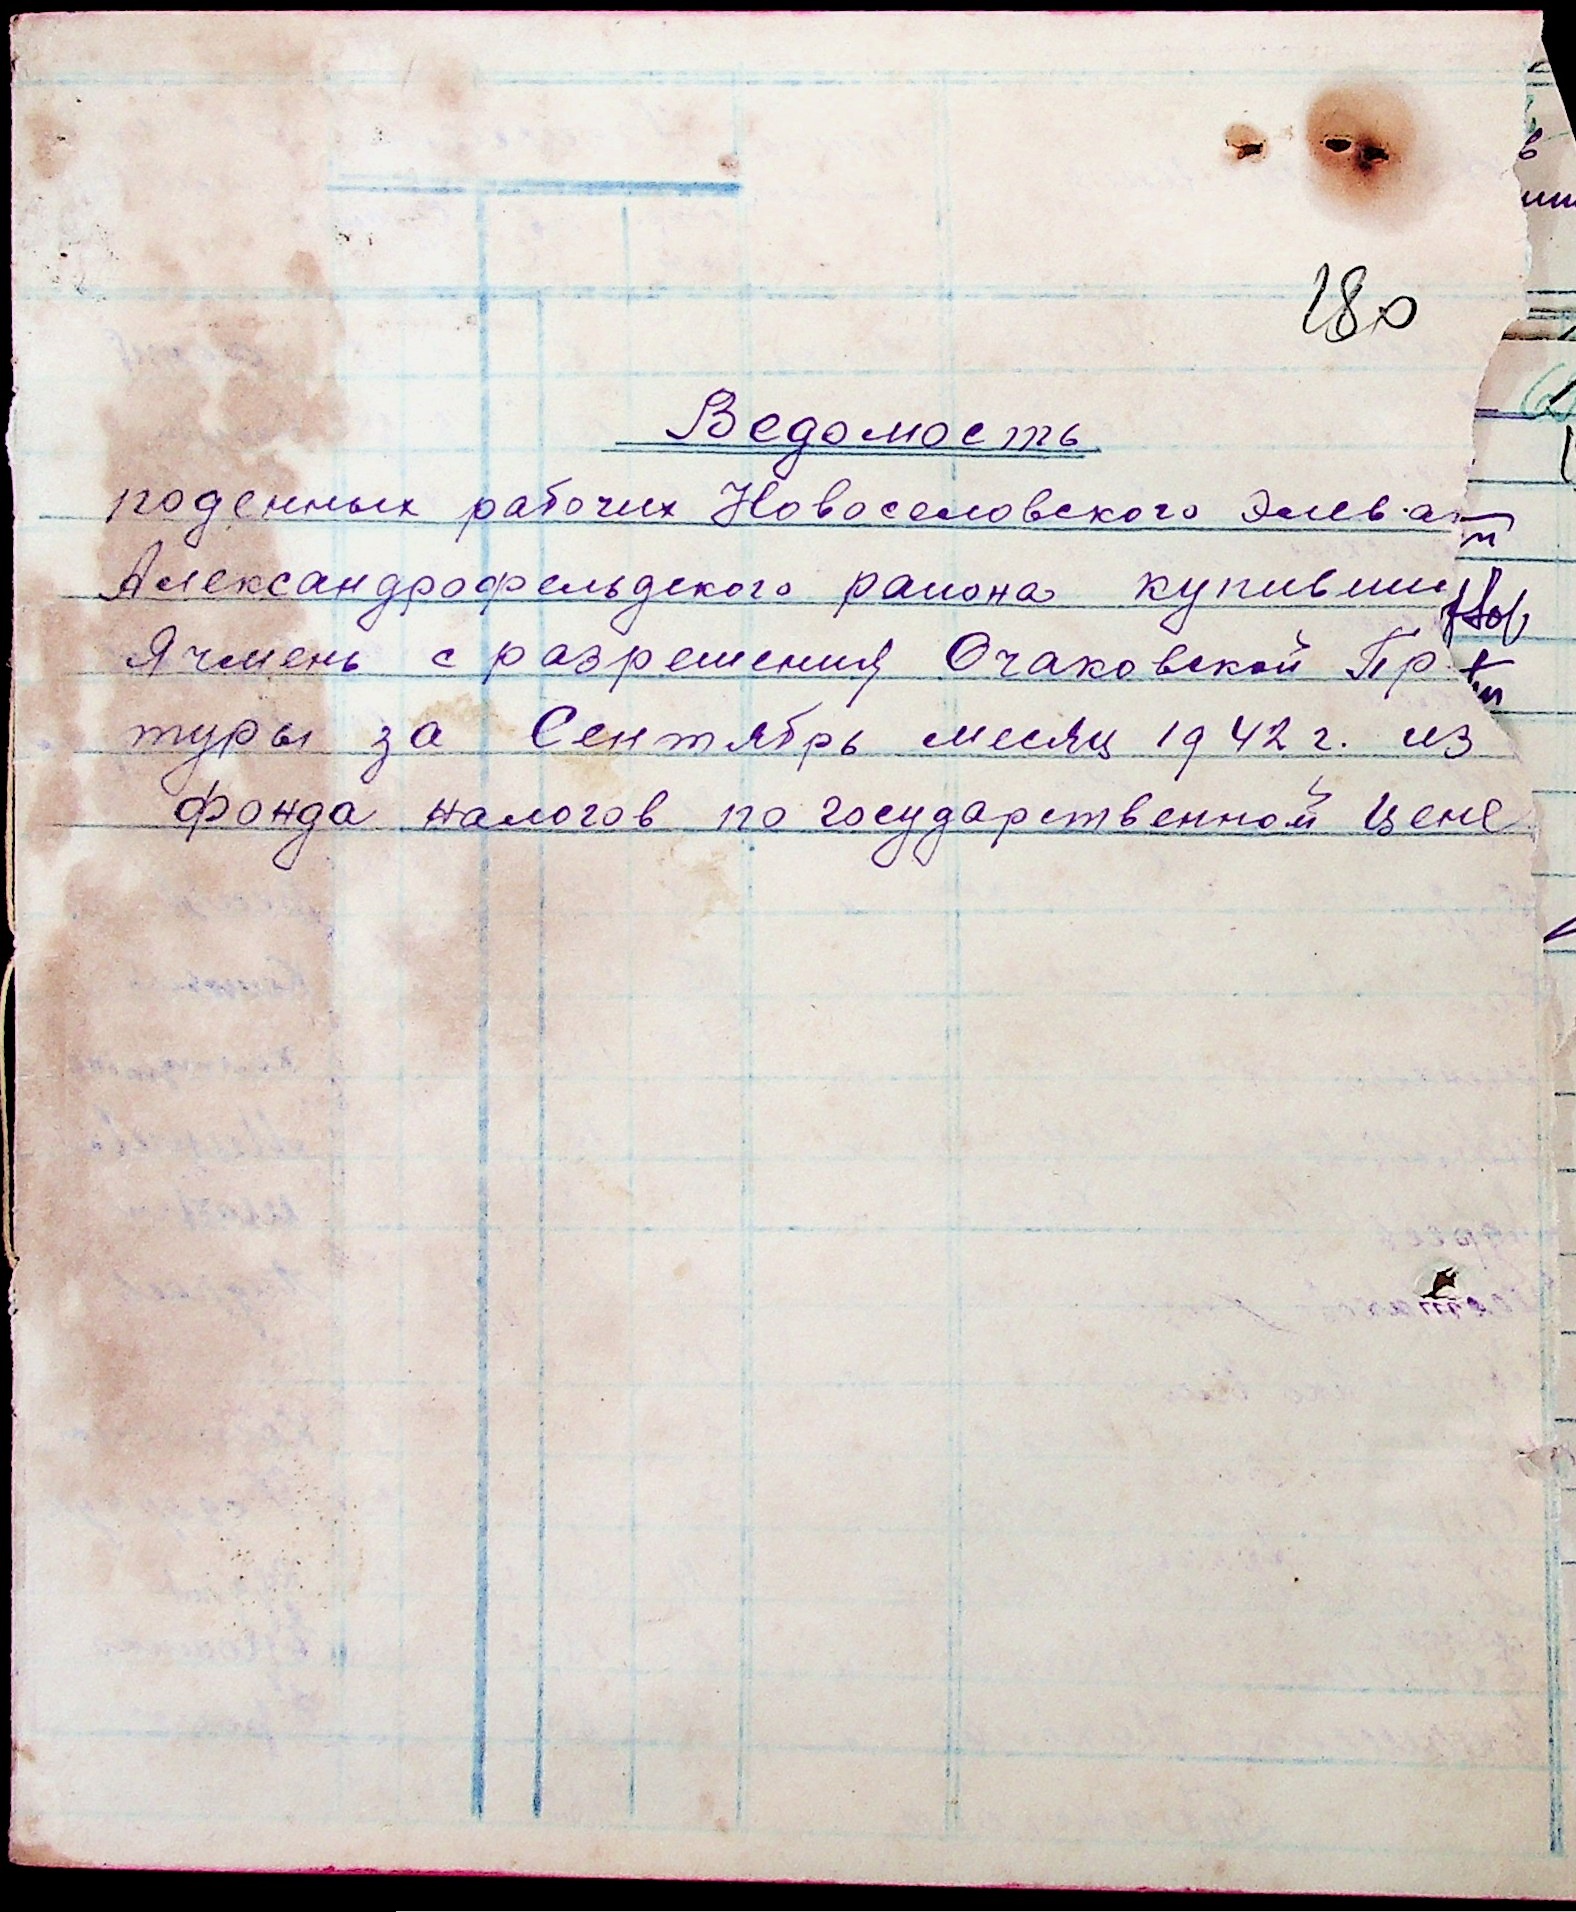 180
Ведомость
поденных рабочих Новоселовского Элева
Александрофельдского района купивши
Ячмень с разрешения Очаковской Пр
туры за Сентябрь месяц 1942 г. из
фонда налогов по государственной Цене